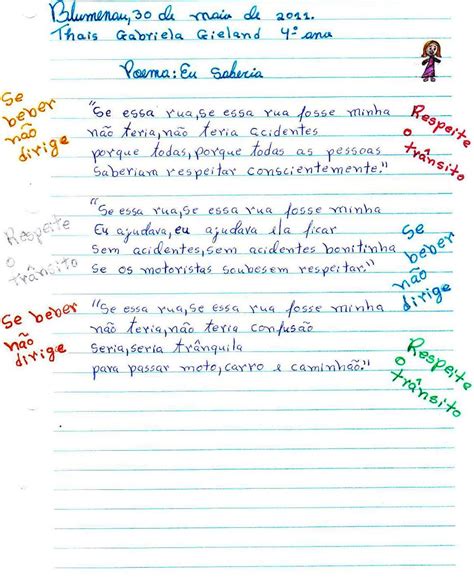 Blumenau, 30 de maio de 2011.
Thais Gabriela Gieland 4º ano
Poema: Eu Saberia
"Se essa rua, se essa rua fosse minha
não teria, não teria acidentes
porque todas, porque todas as pessoas
Saberiam respeitar conscientemente."
"Se essa rua, se essa rua fosse minha
Eu ajudava, eu ajudava ela ficar
Sem acidentes, sem acidentes bonitinha
Se os motoristas soubesem respeitar."
"Se essa rua, se essa rua fosse minha
não teria, não teria confusão
seria, seria trânquila
para passar moto, carro e caminhão."
Se
beber
não
dirige
Respeite
o
trânsito
Respeite
o
trânsito
Se
beber
não
dirige
Se beber
não
dirige
Respeite
o
trânsito